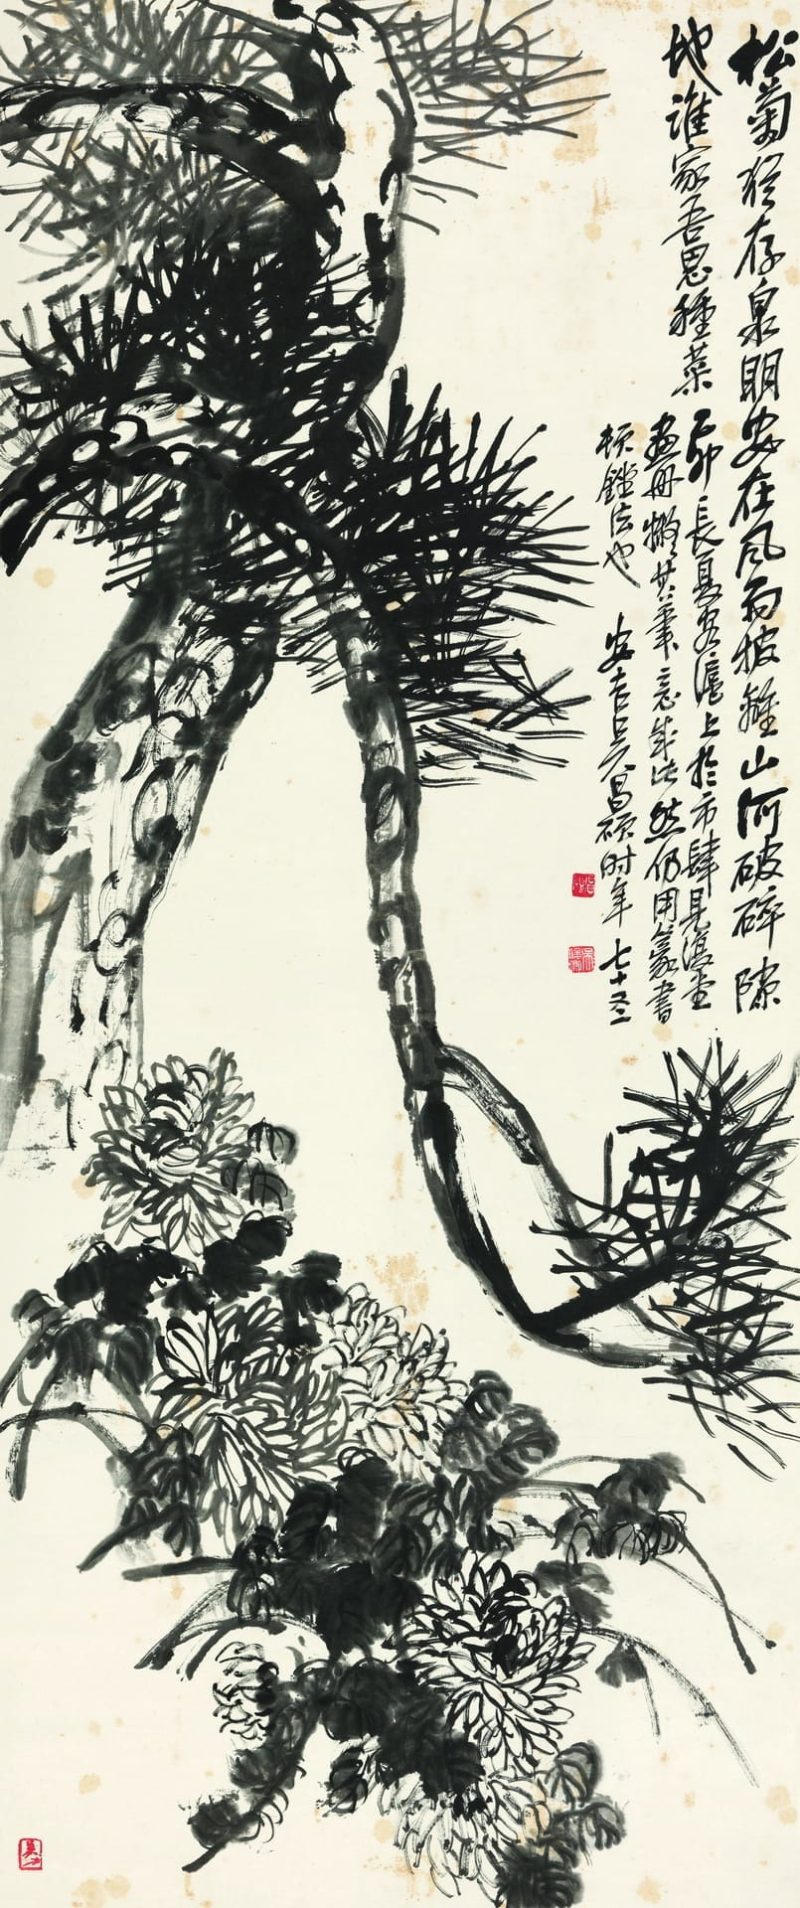 松菊犹存泉明安在風雨披離山河破碎隙
地誰家吾思種菜
乙卯長夏客滬上於市肆見復堂
畫冊擬其筆意成此然仍用篆書
頓銼法也 安吉吳昌碩時年七十又二